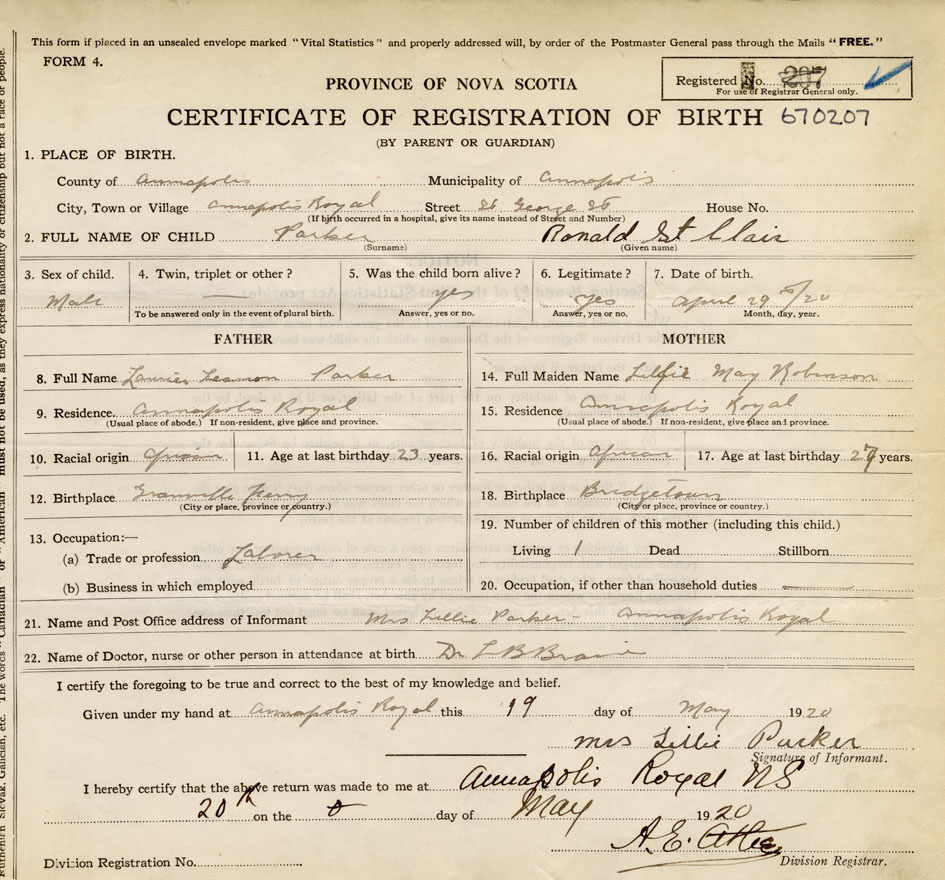 This form if placed in an unsealed envelope marked "Vital Statistics" and properly addressed will, by order of the Postmaster General pass through the Mails "FREE."
FORM 4.
Registered No. 207
For use of Registrar General only.
PROVINCE OF NOVA SCOTIA
CERTIFICATE OF REGISTRATION OF BIRTH 670207
(BY PARENT OR GUARDIAN)
1. PLACE OF BIRTH.
County of Annapolis Municipality of Annapolis
City, Town or Village Annapolis Royal Street St George St House No.
(If birth occurred in a hospital, give its name instead of Street and Number)
2. FULL NAME OF CHILD Parker Ronald St Clair
(Surname) (Given name)
3. Sex of child. 4. Twin, triplet or other? 5. Was the child born alive? 6. Legitimate? 7. Date of birth.
Male yes yes April 29th/20
To be answered only in the event of plural birth. Answer, yes or no. Answer, yes or no. Month, day, year.
FATHER MOTHER
8. Full Name Parker 14. Full Maiden Name Lillie May Robinson
9. Residence. Annapolis Royal 15. Residence Annapolis Royal
(Usual place of abode.) If non-resident, give place and province. (Usual place of abode.) If non-resident, give place and province.
10. Racial origin African 11. Age at last birthday 23 years. 16. Racial origin African 17. Age at last birthday 27 years.
12. Birthplace Granville Ferry 18. Birthplace Bridgetown
(City or place, province or country.) (City or place, province or country.)
19. Number of children of this mother (including this child.)
13. Occupation:—
(a) Trade or profession Laborer Living 1 Dead Stillborn
(b) Business in which employed 20. Occupation, if other than household duties
21. Name and Post Office address of Informant Mrs Lillie Parker - Annapolis Royal
22. Name of Doctor, nurse or other person in attendance at birth Dr L B
I certify the foregoing to be true and correct to the best of my knowledge and belief.
Given under my hand at Annapolis Royal this 19 day of May 1920
Mrs Lillie Parker
Signature of Informant.
I hereby certify that the above return was made to me at Annapolis Royal NS
20th on the day of May 1920
A.E.
Division Registration No. Division Registrar.